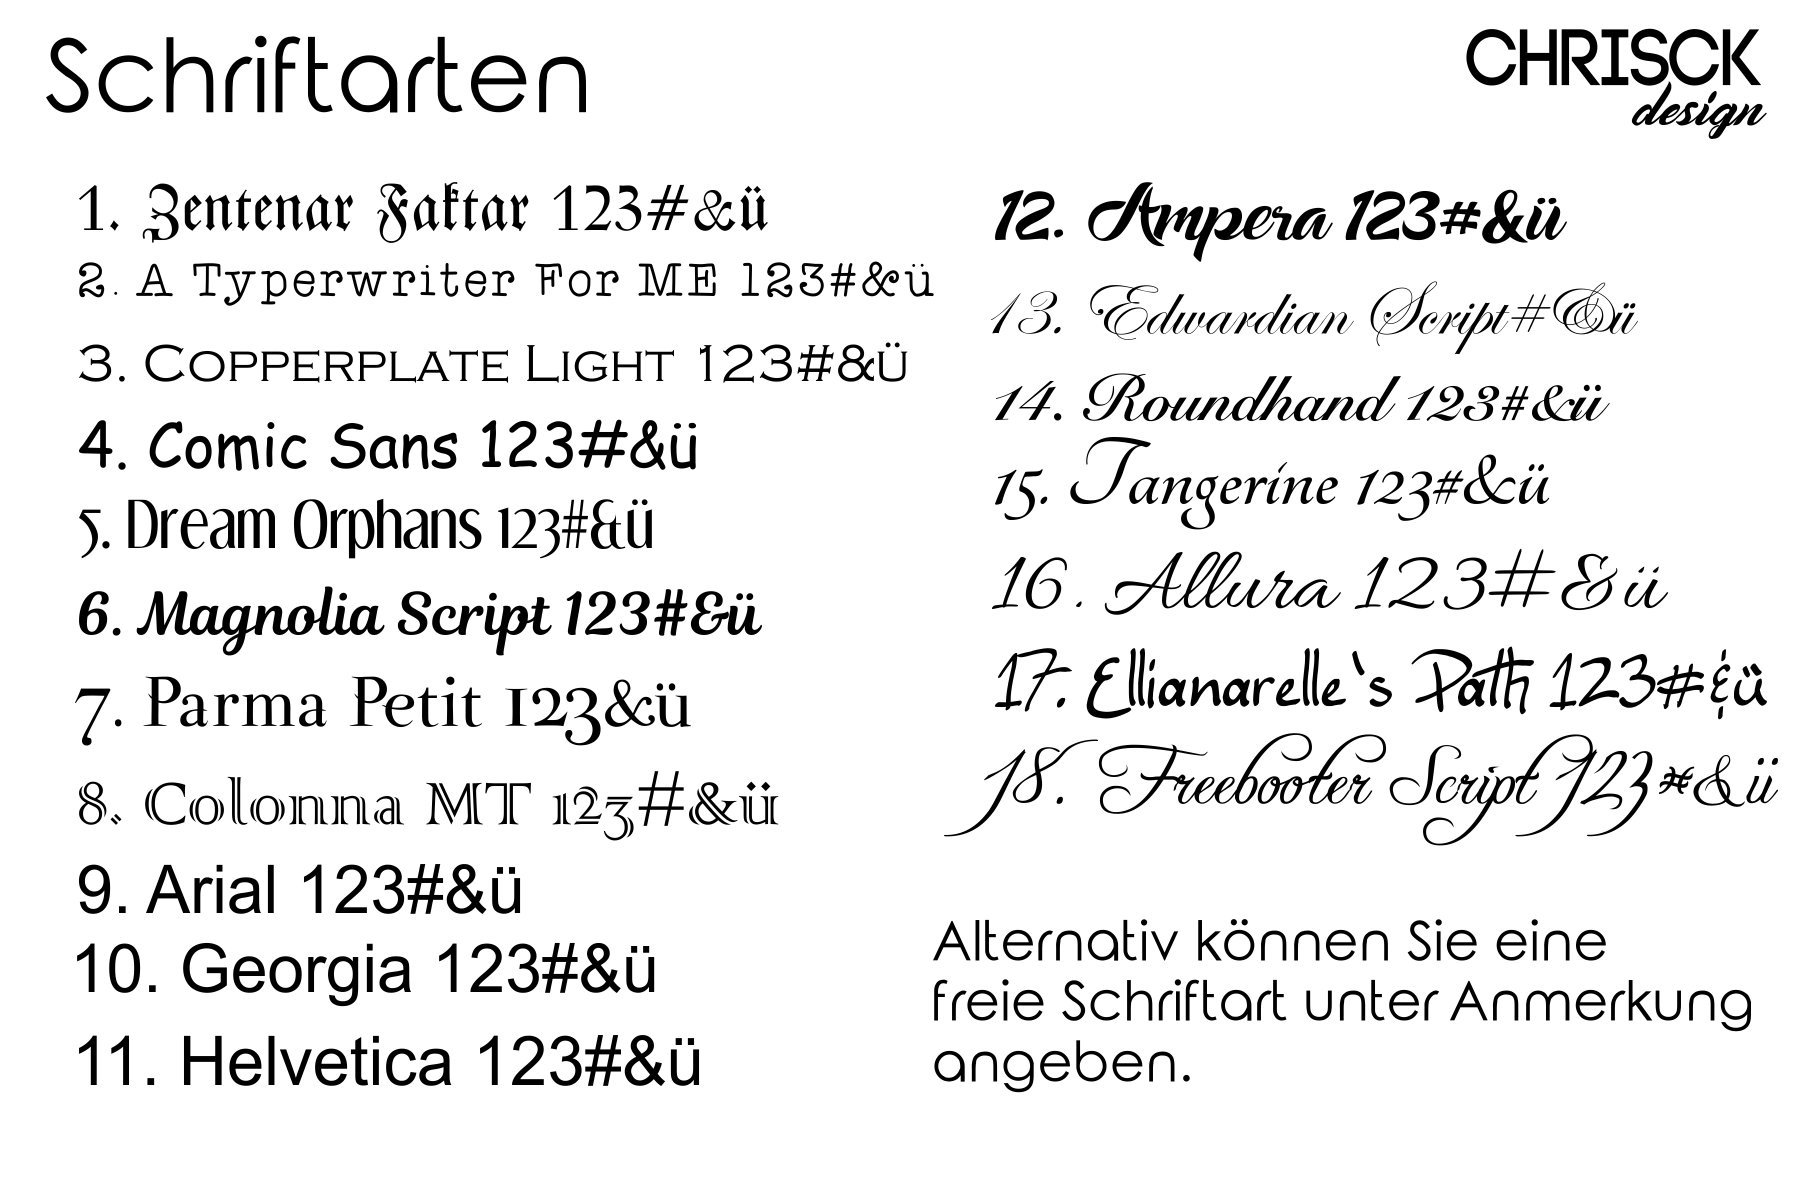 Schriftarten
CHRISCK
design
1. Zentenar Faktar 123#&ü
2. A Typerwriter For ME 123#&ü
3. Copperplate Light 123#&ü
4. Comic Sans 123#&ü
5. Dream Orphans 123#&ü
6. Magnolia Script 123#&ü
7. Parma Petit 123&ü
8. Colonna MT 123#&ü
9. Arial 123#&ü
10. Georgia 123#&ü
11. Helvetica 123#&ü
12. Ampera 123#&ü
13. Edwardian Script#&ü
14. Roundhand 123#&ü
15. Tangerine 123#&ü
16. Allura 123#&ü
17. Ellianarelle`s Path 123#&ü
18. Freebooter Script 123#&ü
Alternativ können Sie eine
freie Schriftart unter Anmerkung
angeben.